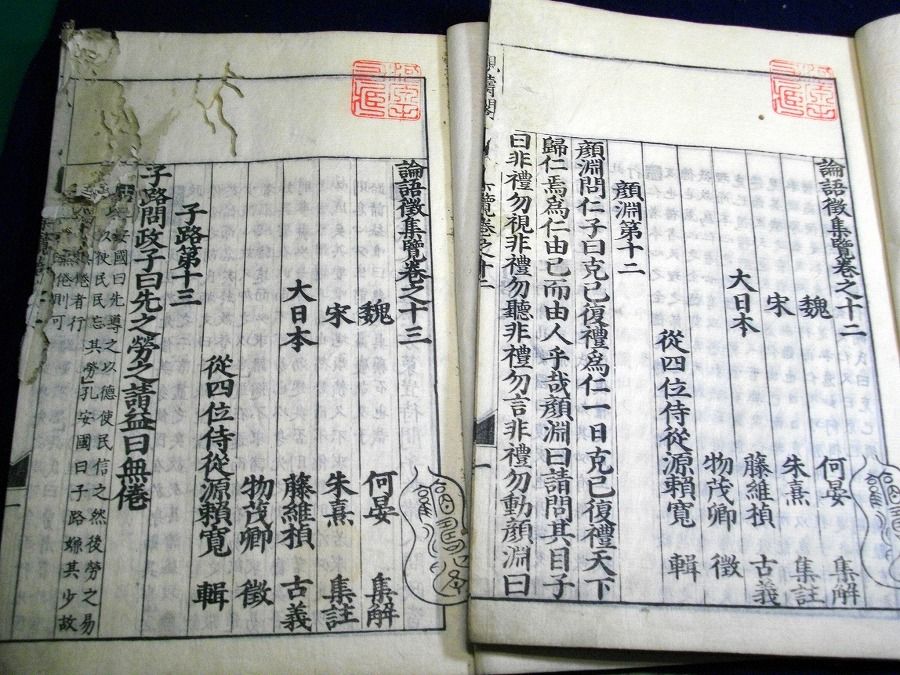 論語徵集覽卷之十二
魏　何晏　集解
宋　朱熹　集註
大日本　藤維楨　古義
物茂卿　徵
從四位侍從源賴寬　輯
顏淵第十二
顏淵問仁子曰克己復禮爲仁一日克己復禮天下
歸仁焉爲仁由己而由人乎哉顏淵曰請問其目子
曰非禮勿視非禮勿聽非禮勿言非禮勿動顏淵曰
論語徵集覽卷之十三
魏　何晏　集解
宋　朱熹　集註
大日本　藤維楨　古義
物茂卿　徵
從四位侍從源賴寬　輯
子路第十三
子路問政子曰先之勞之請益曰無倦
安國曰先導之以德使民信之然後勞之易
久使民民忘其勞孔安國曰子路嫌其少故
倦者行
無倦則可